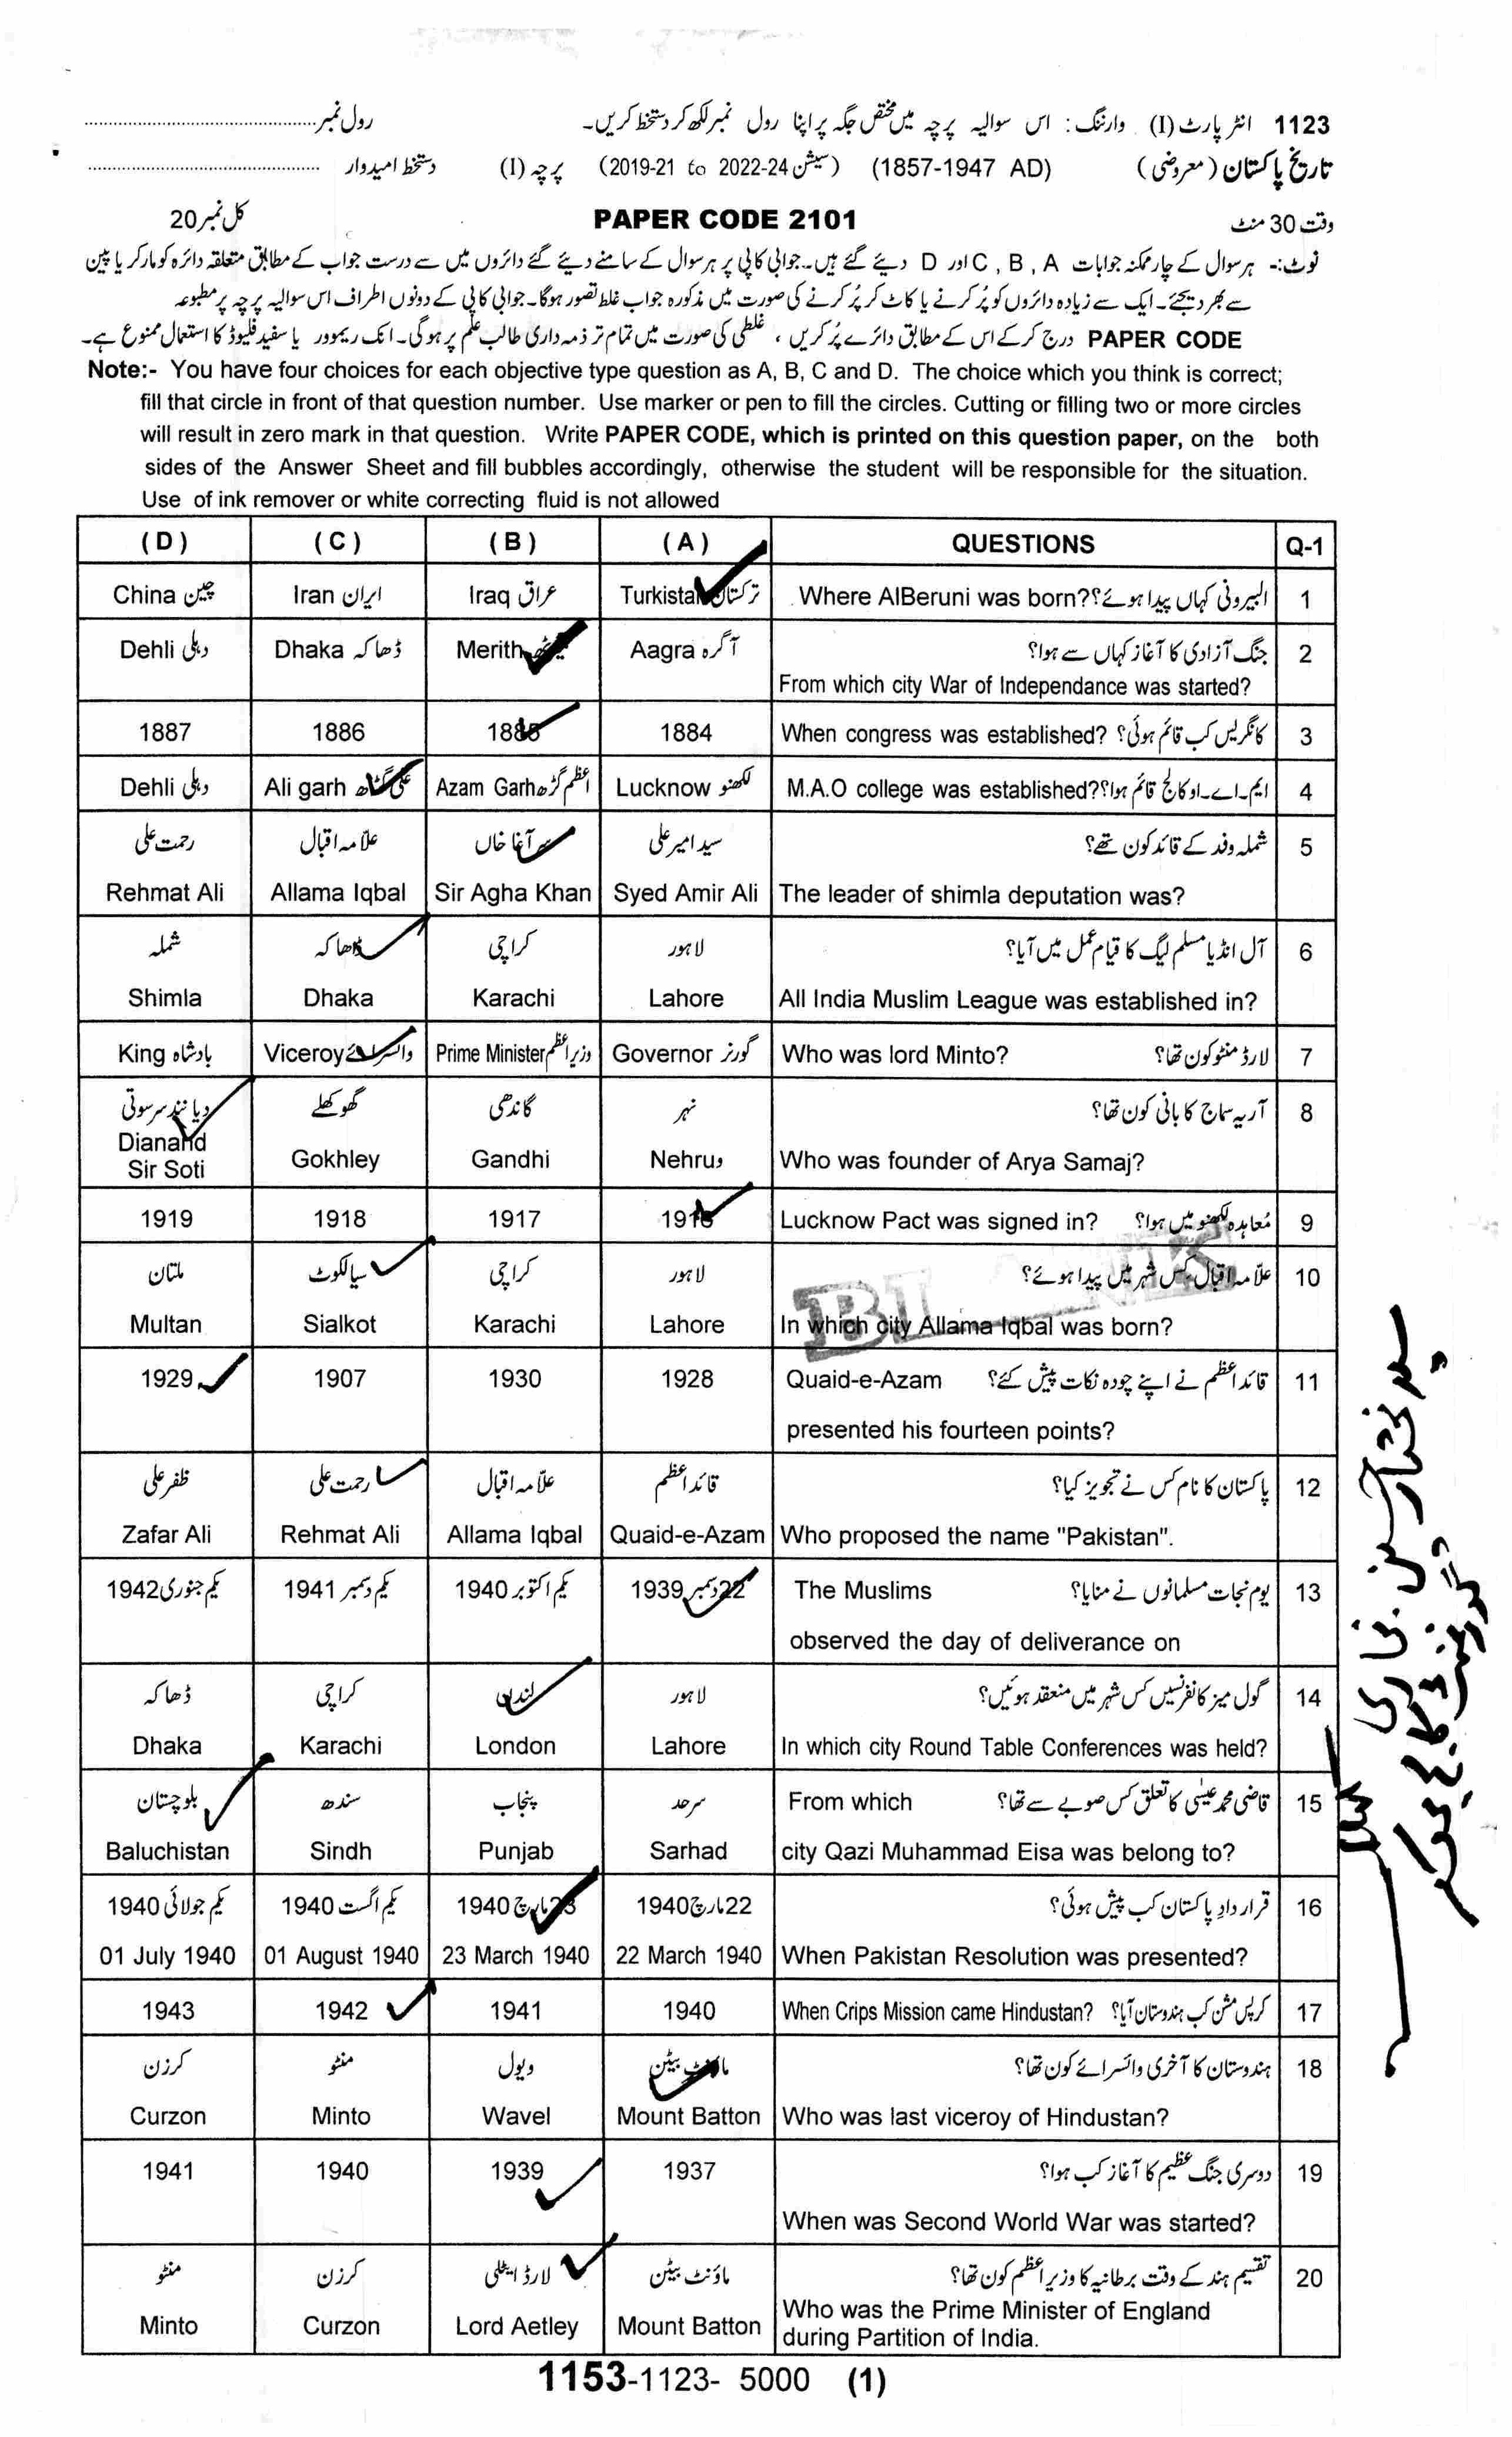 1123 انٹر پارٹ (I) وارننگ : اس سوالیہ پرچہ میں مختص جگہ پر اپنا رول نمبر لکھ کر دستخط کریں۔ رول نمبر
تاریخ پاکستان (معروضی) (1857-1947 AD) (سیشن 2019-21 to 2022-24) پرچہ (I) دستخط امیدوار
وقت 30 منٹ PAPER CODE 2101 کل نمبر 20
نوٹ:- ہر سوال کے چار ممکنہ جوابات A , B , C اور D دیئے گئے ہیں۔ جوابی کاپی پر ہر سوال کے سامنے دیئے گئے دائروں میں سے درست جواب کے مطابق متعلقہ دائرہ کو مارکر یا پین
سے بھر دیجئے۔ ایک سے زیادہ دائروں کو پُر کرنے یا کاٹ کر پُر کرنے کی صورت میں مذکورہ جواب غلط تصور ہوگا۔ جوابی کاپی کے دونوں اطراف اس سوالیہ پرچہ پر مطبوعہ
PAPER CODE درج کر کے اس کے مطابق دائرے پُر کریں ، غلطی کی صورت میں تمام تر ذمہ داری طالب علم پر ہوگی۔ انک ریموور یا سفید فلیوڈ کا استعمال ممنوع ہے۔
Note:- You have four choices for each objective type question as A, B, C and D. The choice which you think is correct;
fill that circle in front of that question number. Use marker or pen to fill the circles. Cutting or filling two or more circles
will result in zero mark in that question. Write PAPER CODE, which is printed on this question paper, on the both
sides of the Answer Sheet and fill bubbles accordingly, otherwise the student will be responsible for the situation.
Use of ink remover or white correcting fluid is not allowed
(D) (C) (B) (A) QUESTIONS Q-1
China چین Iran ایران Iraq عراق Turkistan ترکستان Where AlBeruni was born? البیرونی کہاں پیدا ہوئے؟ 1
Dehli دہلی Dhaka ڈھاکہ Merith Aagra آگرہ جنگ آزادی کا آغاز کہاں سے ہوا؟ 2
From which city War of Independance was started?
1887 1886 1885 1884 When congress was established? کانگریس کب قائم ہوئی؟ 3
Dehli دہلی Ali garh علی گڑھ Azam Garh اعظم گڑھ Lucknow لکھنو M.A.O college was established? ایم۔اے۔او کالج قائم ہوا؟ 4
رحمت علی علامہ اقبال سر آغا خاں سید امیر علی شملہ وفد کے قائد کون تھے؟ 5
Rehmat Ali Allama Iqbal Sir Agha Khan Syed Amir Ali The leader of shimla deputation was?
شملہ ڈھاکہ کراچی لاہور آل انڈیا مسلم لیگ کا قیام عمل میں آیا؟ 6
Shimla Dhaka Karachi Lahore All India Muslim League was established in?
King بادشاہ Viceroy وائسرائے Prime Minister وزیراعظم Governor گورنر Who was lord Minto? لارڈ منٹو کون تھا؟ 7
دیانند سرسوتی گھوکھلے گاندھی نہر آریہ سماج کا بانی کون تھا؟ 8
Dianand
Sir Soti Gokhley Gandhi Nehru و Who was founder of Arya Samaj?
1919 1918 1917 1916 Lucknow Pact was signed in? معاہدہ لکھنو میں ہوا؟ 9
ملتان سیالکوٹ کراچی لاہور علامہ اقبال کس شہر میں پیدا ہوئے؟ 10
Multan Sialkot Karachi Lahore In which city Allama Iqbal was born?
1929 1907 1930 1928 Quaid-e-Azam قائداعظم نے اپنے چودہ نکات پیش کئے؟ 11
presented his fourteen points?
ظفر علی رحمت علی علامہ اقبال قائداعظم پاکستان کا نام کس نے تجویز کیا؟ 12
Zafar Ali Rehmat Ali Allama Iqbal Quaid-e-Azam Who proposed the name "Pakistan".
یکم جنوری 1942 یکم دسمبر 1941 یکم اکتوبر 1940 22 دسمبر 1939 The Muslims یوم نجات مسلمانوں نے منایا؟ 13
observed the day of deliverance on
ڈھاکہ کراچی لندن لاہور گول میز کانفرنسیں کس شہر میں منعقد ہوئیں؟ 14
Dhaka Karachi London Lahore In which city Round Table Conferences was held?
بلوچستان سندھ پنجاب سرحد From which قاضی محمد عیسیٰ کا تعلق کس صوبے سے تھا؟ 15
Baluchistan Sindh Punjab Sarhad city Qazi Muhammad Eisa was belong to?
یکم جولائی 1940 یکم اگست 1940 23 مارچ 1940 22 مارچ 1940 قرارداد پاکستان کب پیش ہوئی؟ 16
01 July 1940 01 August 1940 23 March 1940 22 March 1940 When Pakistan Resolution was presented?
1943 1942 1941 1940 When Crips Mission came Hindustan? کرپس مشن کب ہندوستان آیا؟ 17
کرزن منٹو ویول ماؤنٹ بیٹن ہندوستان کا آخری وائسرائے کون تھا؟ 18
Curzon Minto Wavel Mount Batton Who was last viceroy of Hindustan?
1941 1940 1939 1937 دوسری جنگ عظیم کا آغاز کب ہوا؟ 19
When was Second World War was started?
منٹو کرزن لارڈ ایٹلی ماؤنٹ بیٹن تقسیم ہند کے وقت برطانیہ کا وزیراعظم کون تھا؟ 20
Minto Curzon Lord Aetley Mount Batton Who was the Prime Minister of England
during Partition of India.
1153-1123- 5000 (1)
سید مختار حسین بخاری
گورنمنٹ کالج